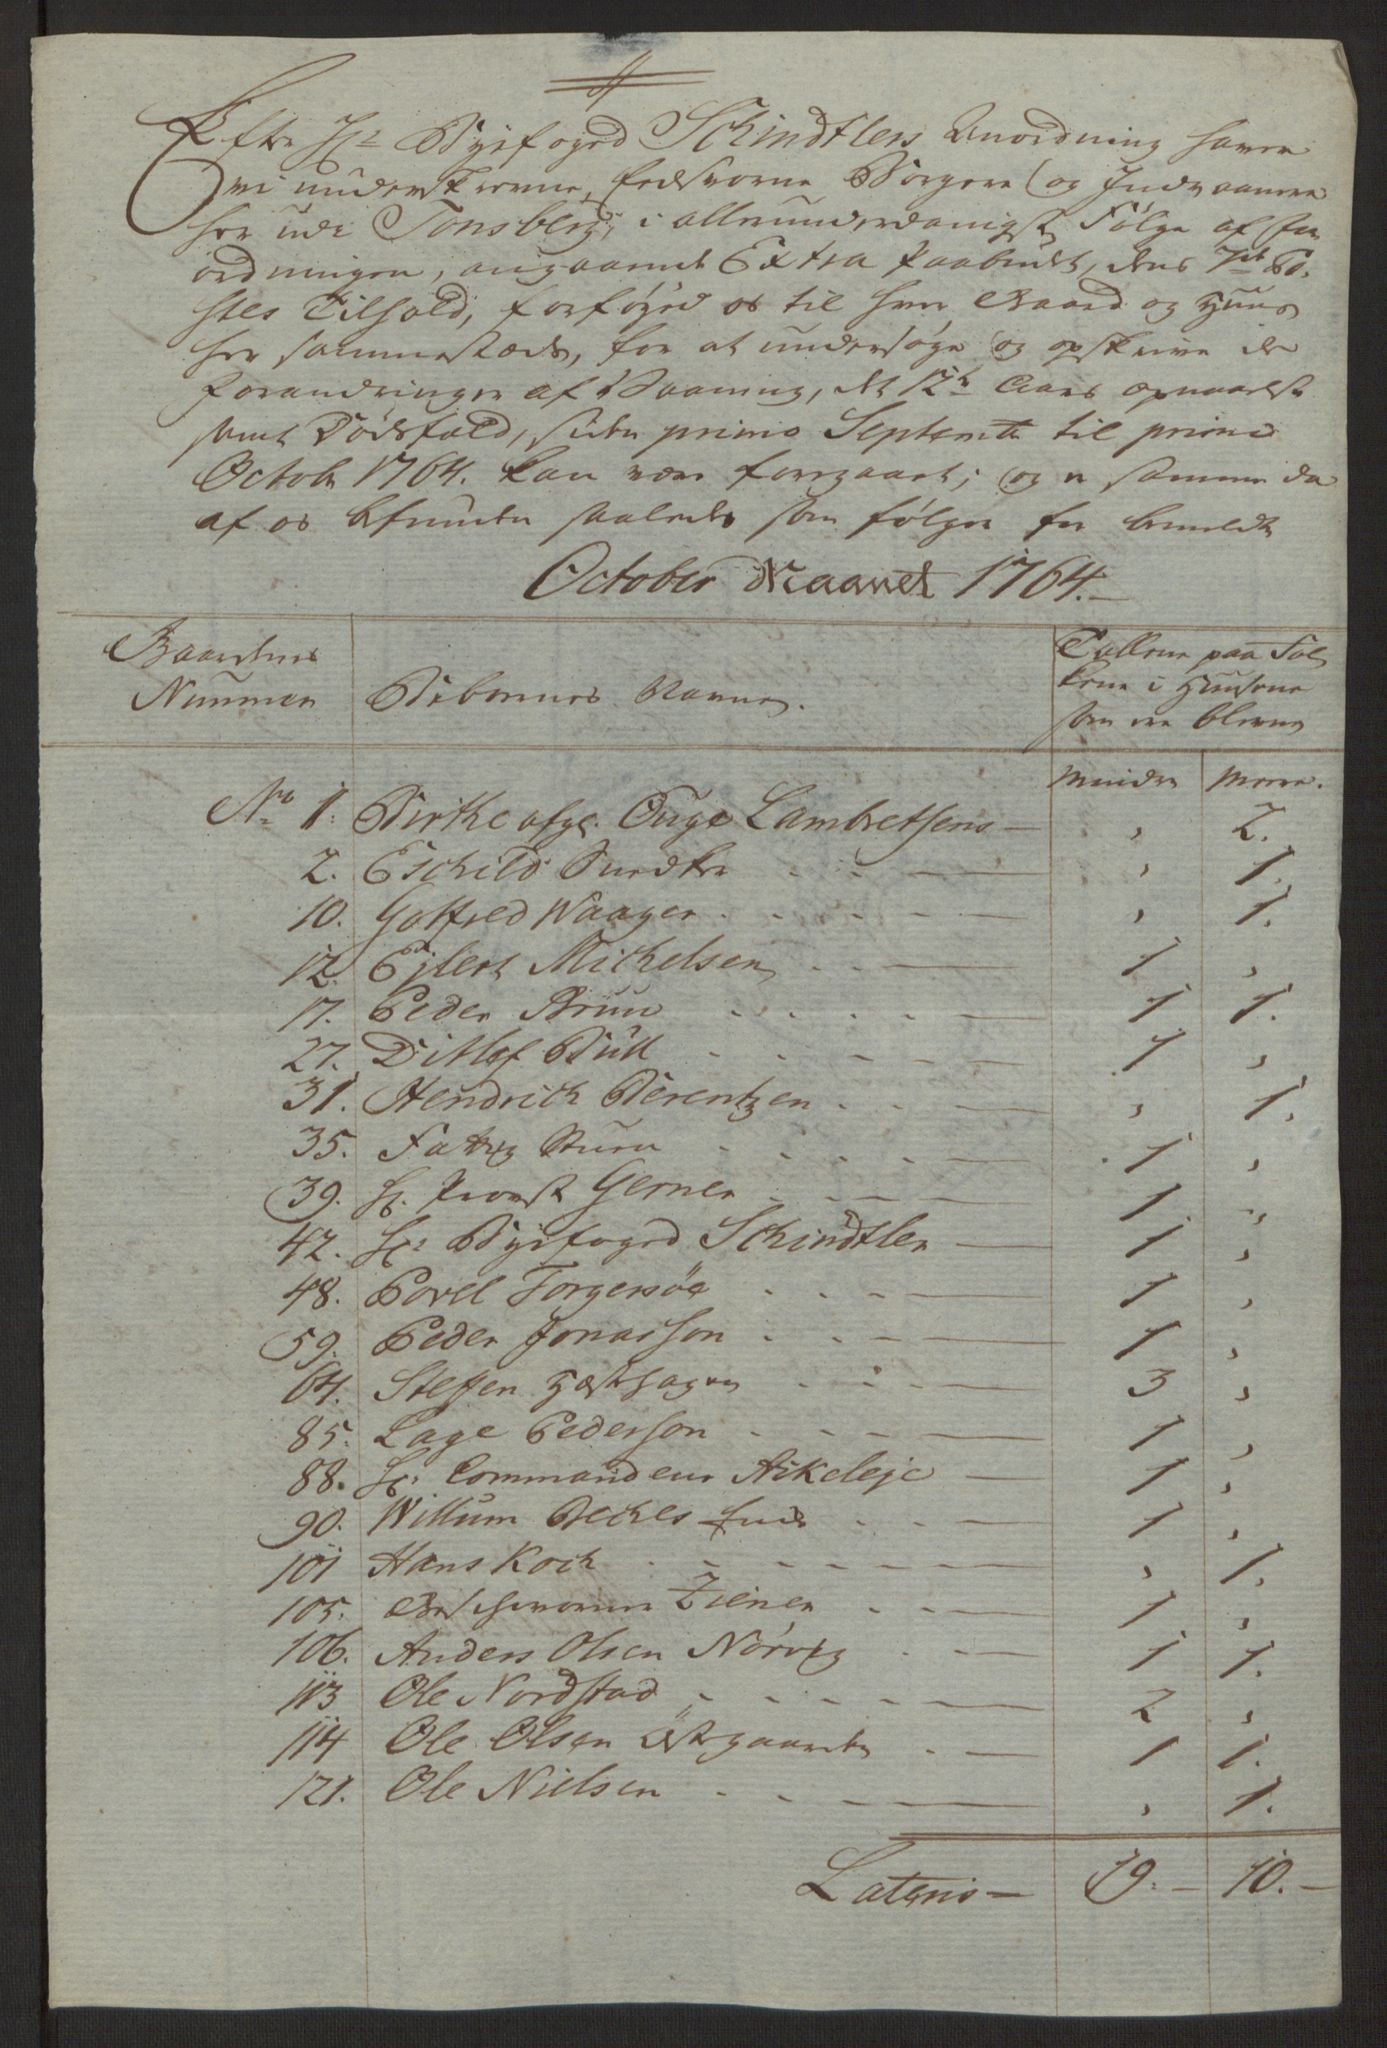 Efter Hr. Byefoged Schindtlers Anordning haver
vi underskrevne, Eedsvorne Borgere og Indvaanere
her udi Tønsberg, i allerunderdanigst Følge af For
ordningen, angaaende Extra Paabudet, dens 7de Po-
stes Tilhold, forføyed os til hver Gaard og Huus
her sammestæds, for at undersøge og opskrive de
forandringer af Vaaning, det 12te Aars opnaaelse
samt Dødsfald, siden primo Septembr til primo
Octobr 1764. kan være foregaaet; og er samme da
af os befunden saaledes som følger for bemeldte
October Maaned 1764.
Gaardenes
Nummer
Beboernes Navne.
Tallene paa Fol
kene i Huusene
som ere blevne
Mindre Meere.
No 1. Birthe afg. Ouge Lambretsens — , 2.
2. Eschild Sundbye . . . — , 1.
10. Gotfred Waager . . . — , 1.
12. Ejlert Michelsen . . — 1 ,
17. Peder Bruun . . . . — 1 1.
27. Ditlef Büll . . . . — 1 ,
31. Hendrich Berentzen . . . — , 1.
35. Fattig Stuen . . . . — 1 ,
39. Hr. Provst Gerner . . . — 1 ,
42. Hr. Byefoged Schindtler — 1 ,
48. Povel Torgersøe . . . — 1 ,
59. Peder Jonasson . . . — 1 ,
64. Steffen Hæsthagen . . . — 3 ,
85. Lage Pederson . . . — 1 ,
88. Hr. Commandeur Akeleje — 1 ,
90. Willum Beches Enke . . — 1 ,
101 Hans Koch . . . . — , 1.
105. Ziener . . — 1 ,
106. Anders Olsen Nørvig . . — 1 1.
113 Ole Nordstad . . . . — 2 ,
114 Ole Olsen Østgaarden . — 1 1.
121. Ole Nielsen . . . . — , 1.
Lateris — 19. — 10. —